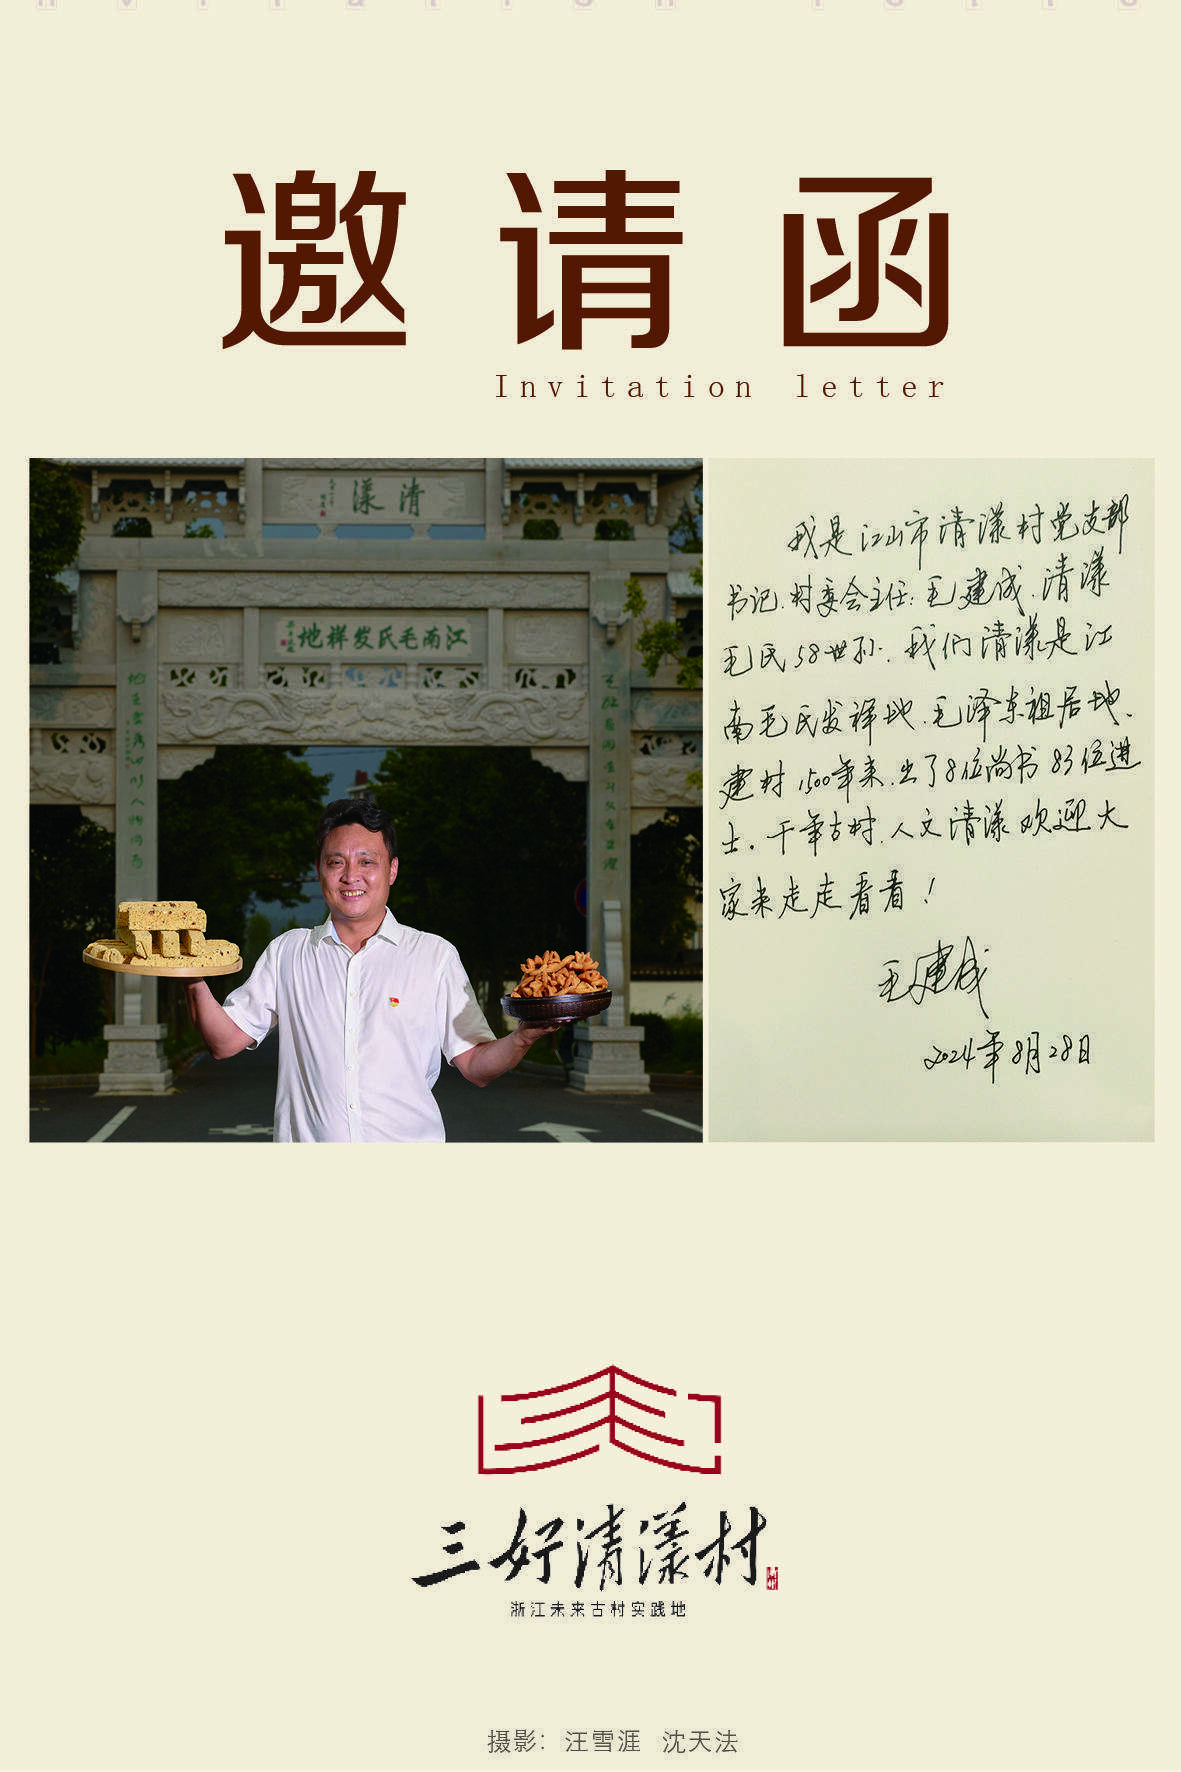 邀请函
Invitation letter
清漾
江南毛氏发祥地
我是江山市清漾村党支部
书记、村委会主任：毛建成，清漾
毛氏58世孙。我们清漾是江
南毛氏发祥地、毛泽东祖居地、
建村1500年来，出了8位尚书83位进
士。千年古村，人文清漾欢迎大
家来走走看看！
毛建成
2024年8月28日
三好清漾村
浙江未来古村实践地
摄影：汪雪涯 沈天法